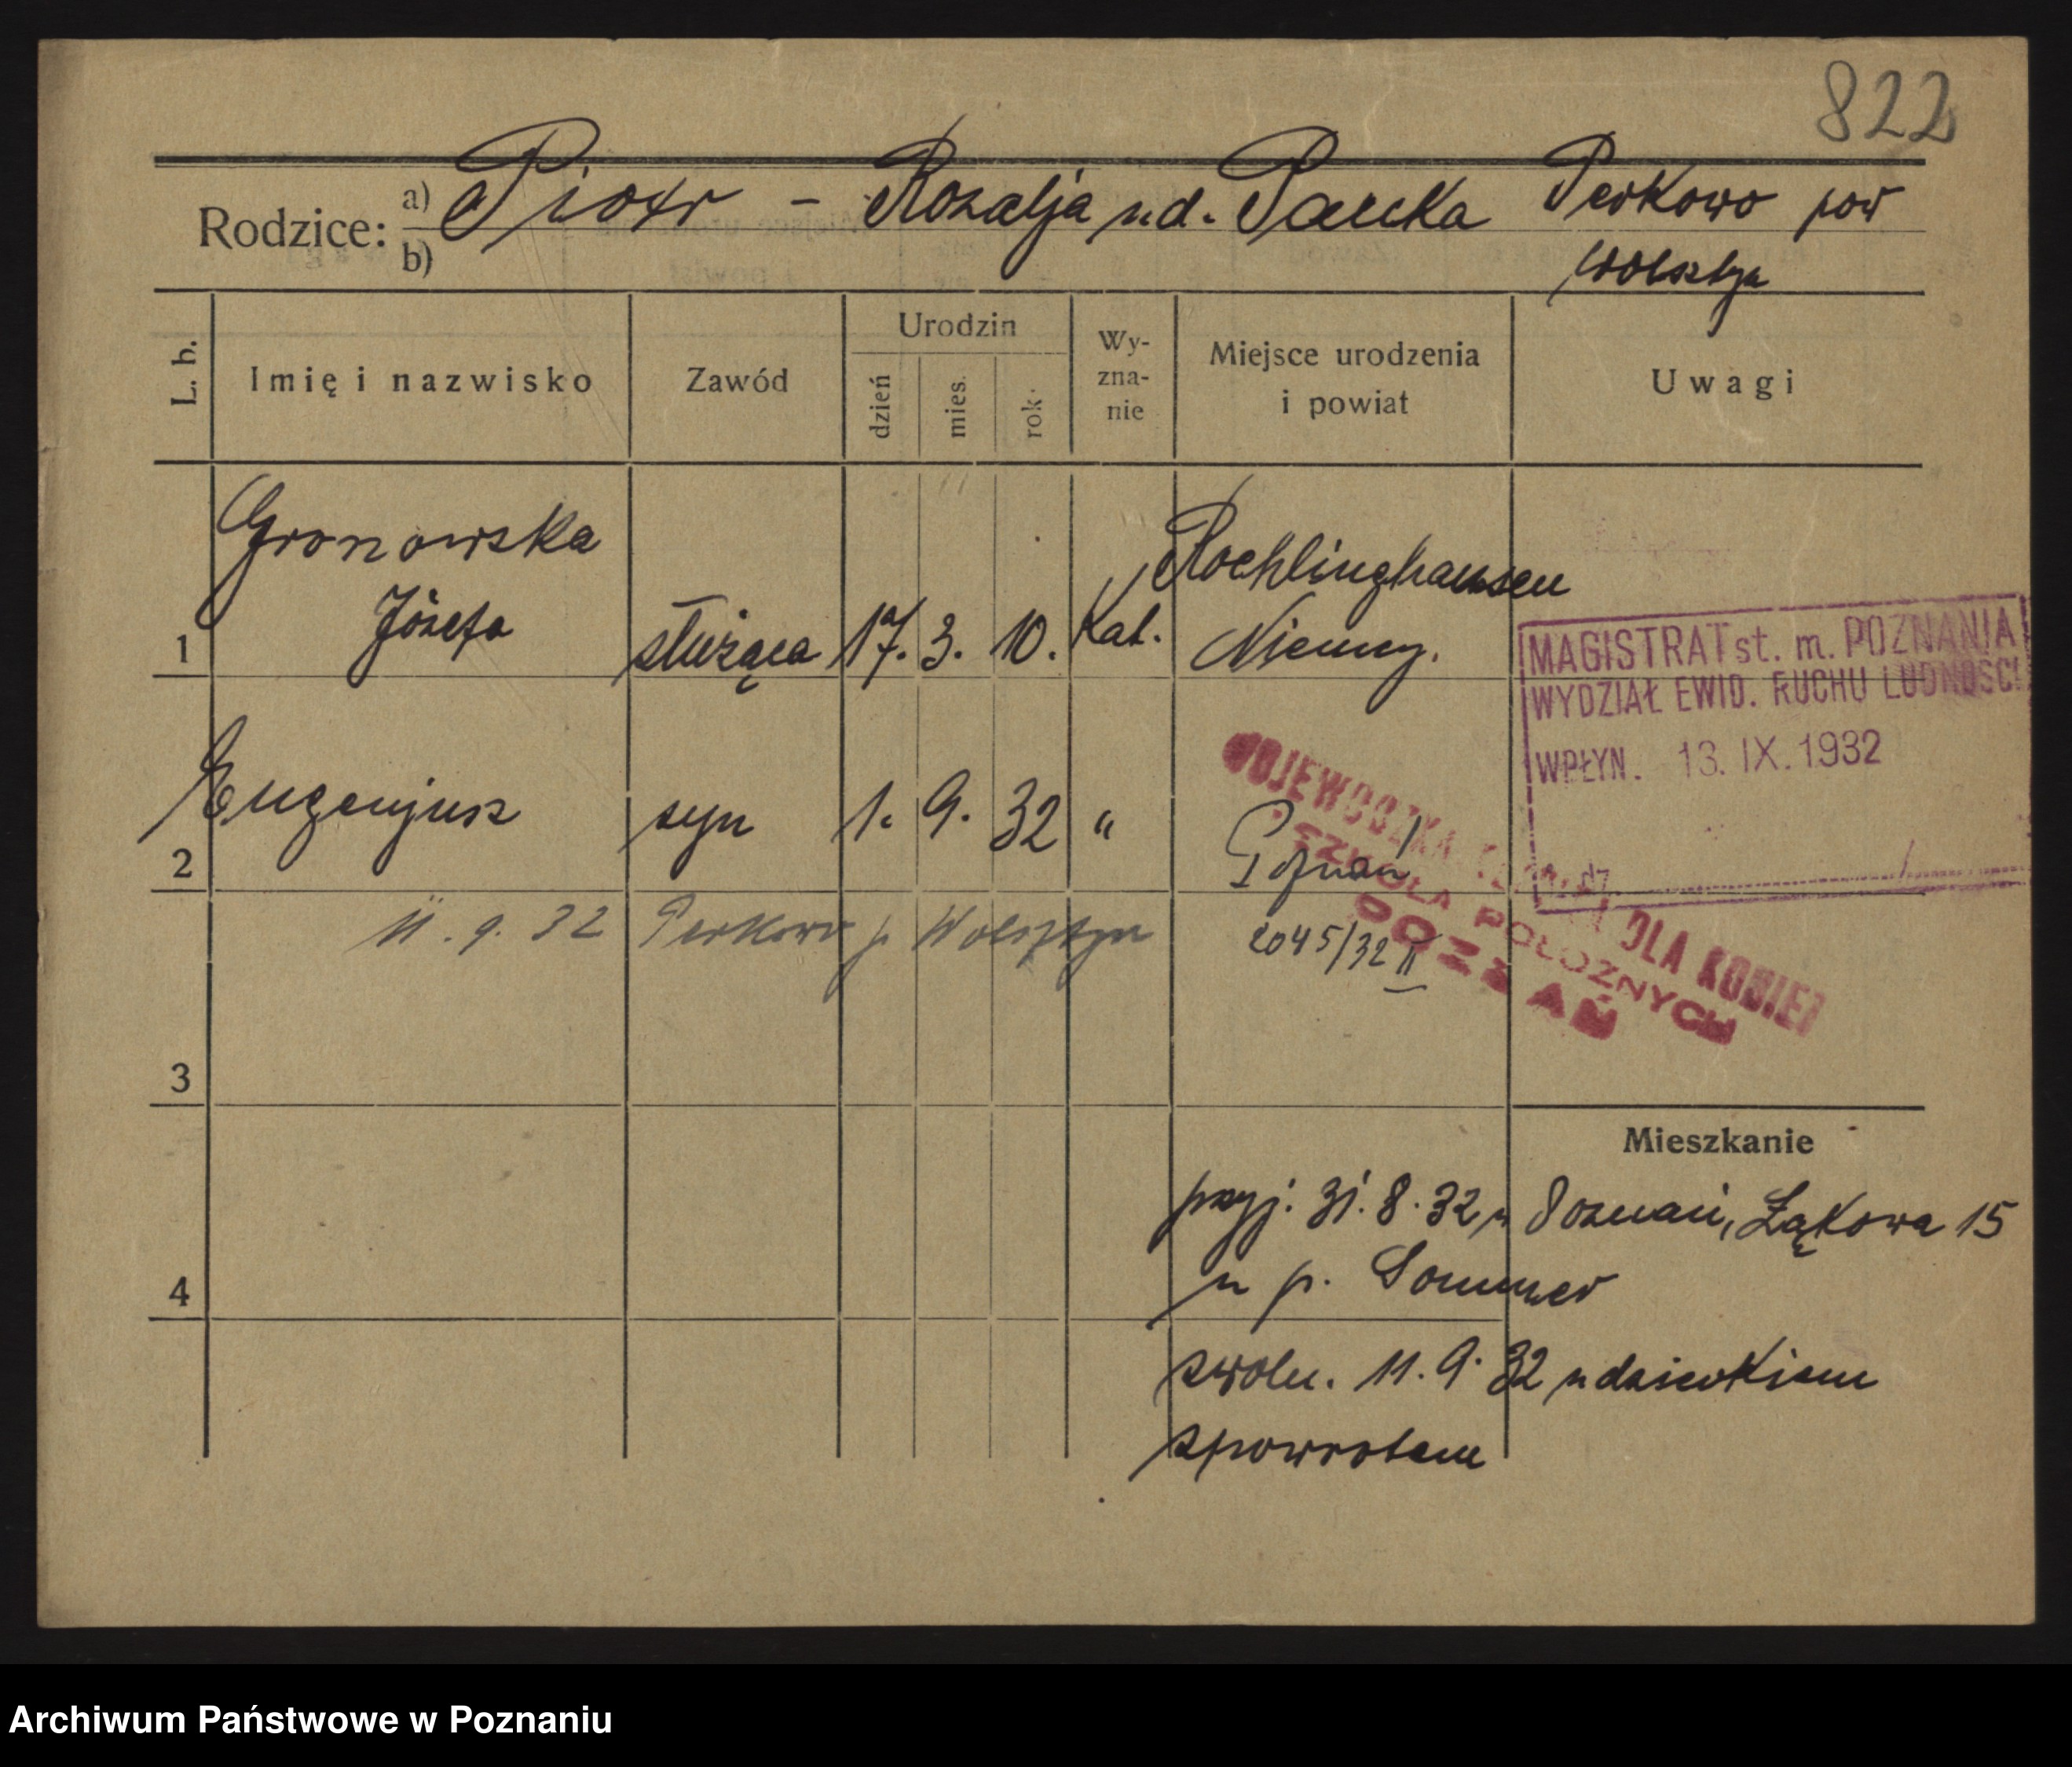 822
Rodzice: a) Piotr - Rozalja z d. Pa Perkowo pow
b) Wolsztyn
L. b. Imię i nazwisko Zawód Urodzin dzień mies. rok. Wy-zna-nie Miejsce urodzenia i powiat Uwagi
Gronowska Rochlinghausen
1 Józefa służąca 17. 3. 10. Kat. Niemcy.
MAGISTRAT st. m. POZNANIA
WYDZIAŁ EWID. RUCHU LUDNOŚCI
WPŁYN. 13. IX. 1932
2 Eugenjusz syn 1. 9. 32 " Poznań
WOJEWÓDZKA DLA KOBIET
SZKOŁA POŁOŻNYCH
POZNAŃ
11. 9. 32 Perkowo p. Wolsztyn 2045/32 II
3
Mieszkanie
przyj. 31. 8. 32 z Poznań, Łąkowa 15
4 u p. Sommer
zwoln. 11. 9. 32 z dzieckiem
zpowrotem
Archiwum Państwowe w Poznaniu